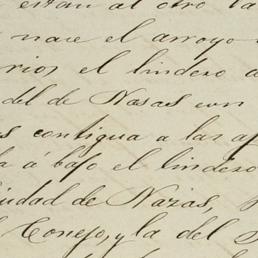 están al otro la
nace el arroyo
rios el lindero a
del de Nasas con
s contigua a las ap
a abajo el lindero
iudad de Nazas,
Conejo, y la del